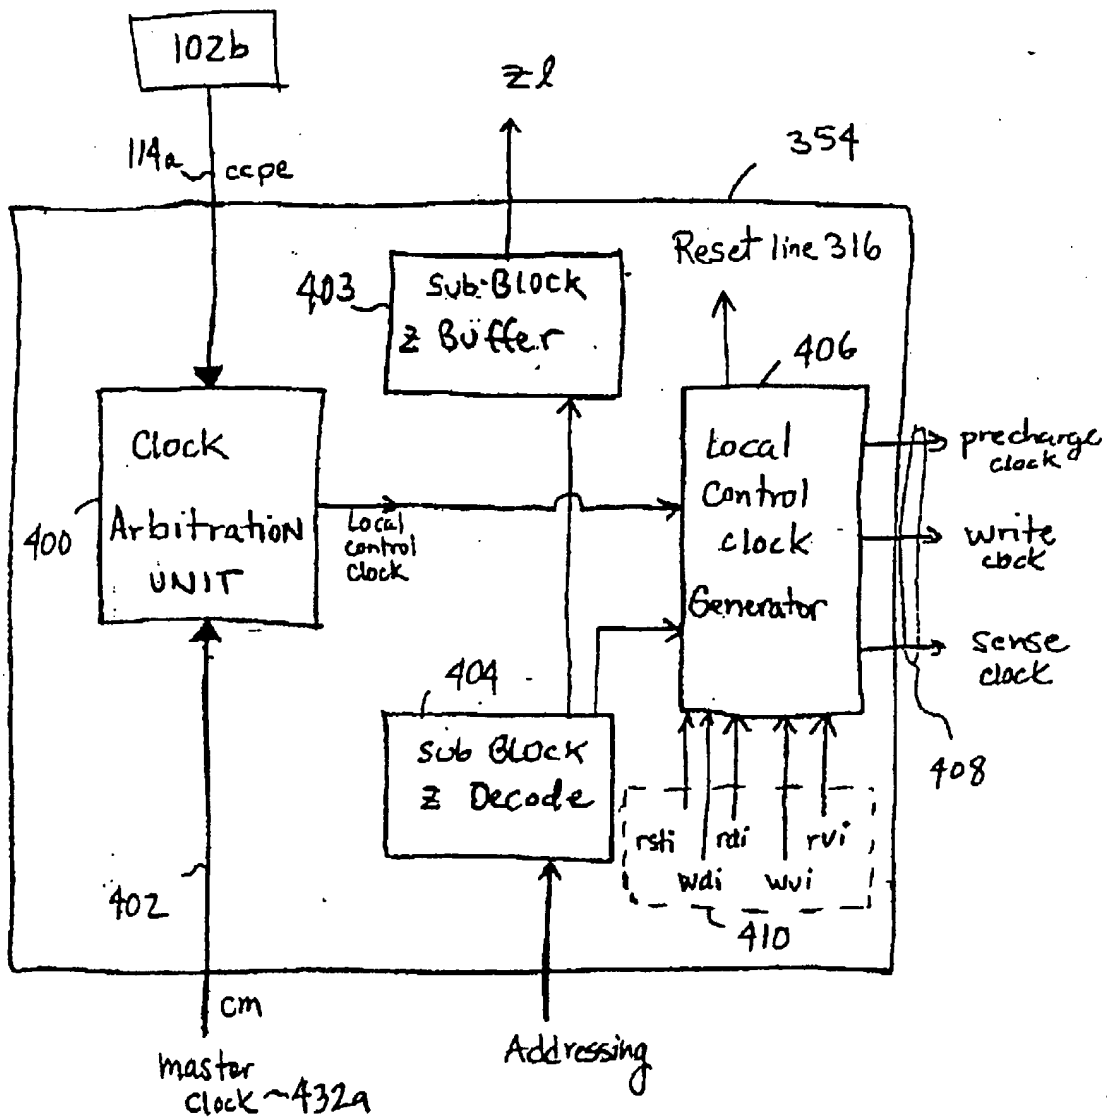 102b
zl
114a
ccpe
354
Reset line 316
403
Sub-Block
z Buffer
406
Clock
Arbitration
UNIT
400
Local
control
clock
Local
Control
clock
Generator
precharge
clock
write
clock
sense
clock
408
404
Sub Block
z Decode
rsti
rdi
rvi
wdi
wvi
410
402
cm
master
clock ~432a
Addressing